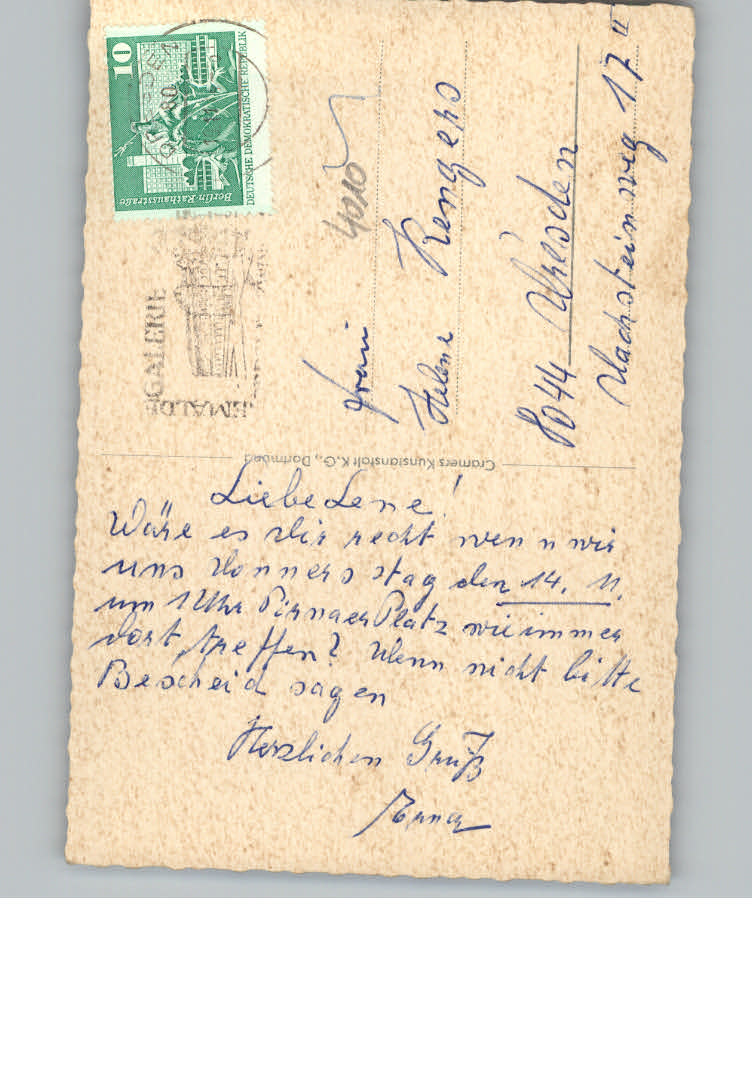 Liebe Lene!
Wäre es dir recht wenn wir
uns Donnerstag den 14. 11.
um 1 Uhr Pirnaer Platz wie immer
dort treffen? Wenn nicht bitte
Bescheid sagen
Herzlichen Gruß
Frau
Helene Rengers
8044 Dresden
Wachsteinweg 17 "
4010
10
Berlin-Rathausstraße
DEUTSCHE DEMOKRATISCHE REPUBLIK
GALERIE
Cramers Kunstanstalt K.G., Dortmund